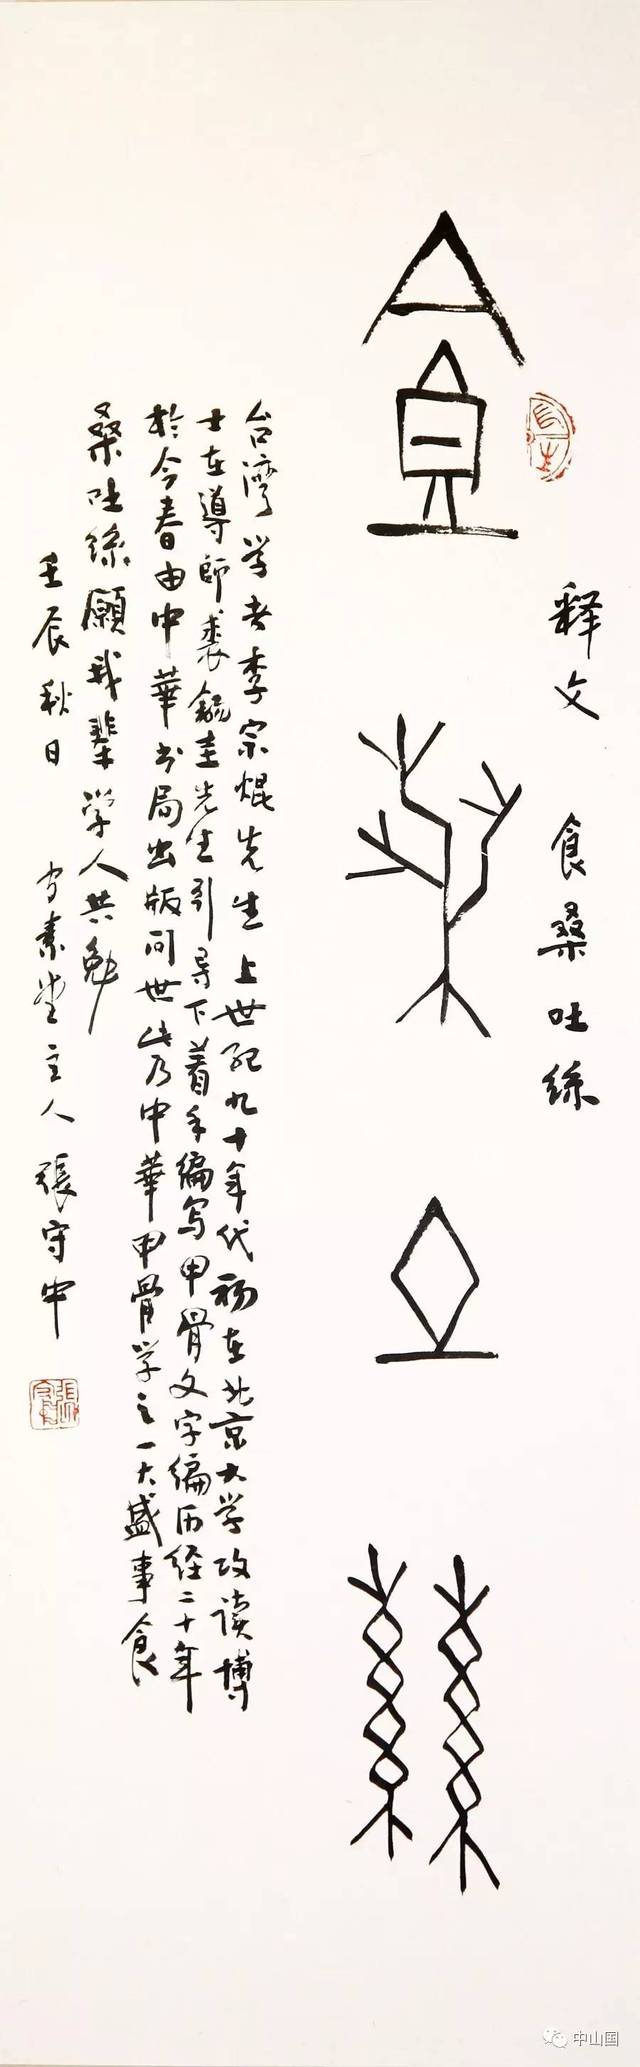 释文 食桑吐絲
食桑土絲
台湾学者李宗焜先生上世纪九十年代初在北京大学攻读博
士在導師裘錫圭先生引导下着手编写甲骨文字编历经二十年
於今春由中華书局出版问世此乃中華甲骨学之一大盛事食
桑吐絲願我辈学人共勉
壬辰秋日 守素堂主人張守中
中山国